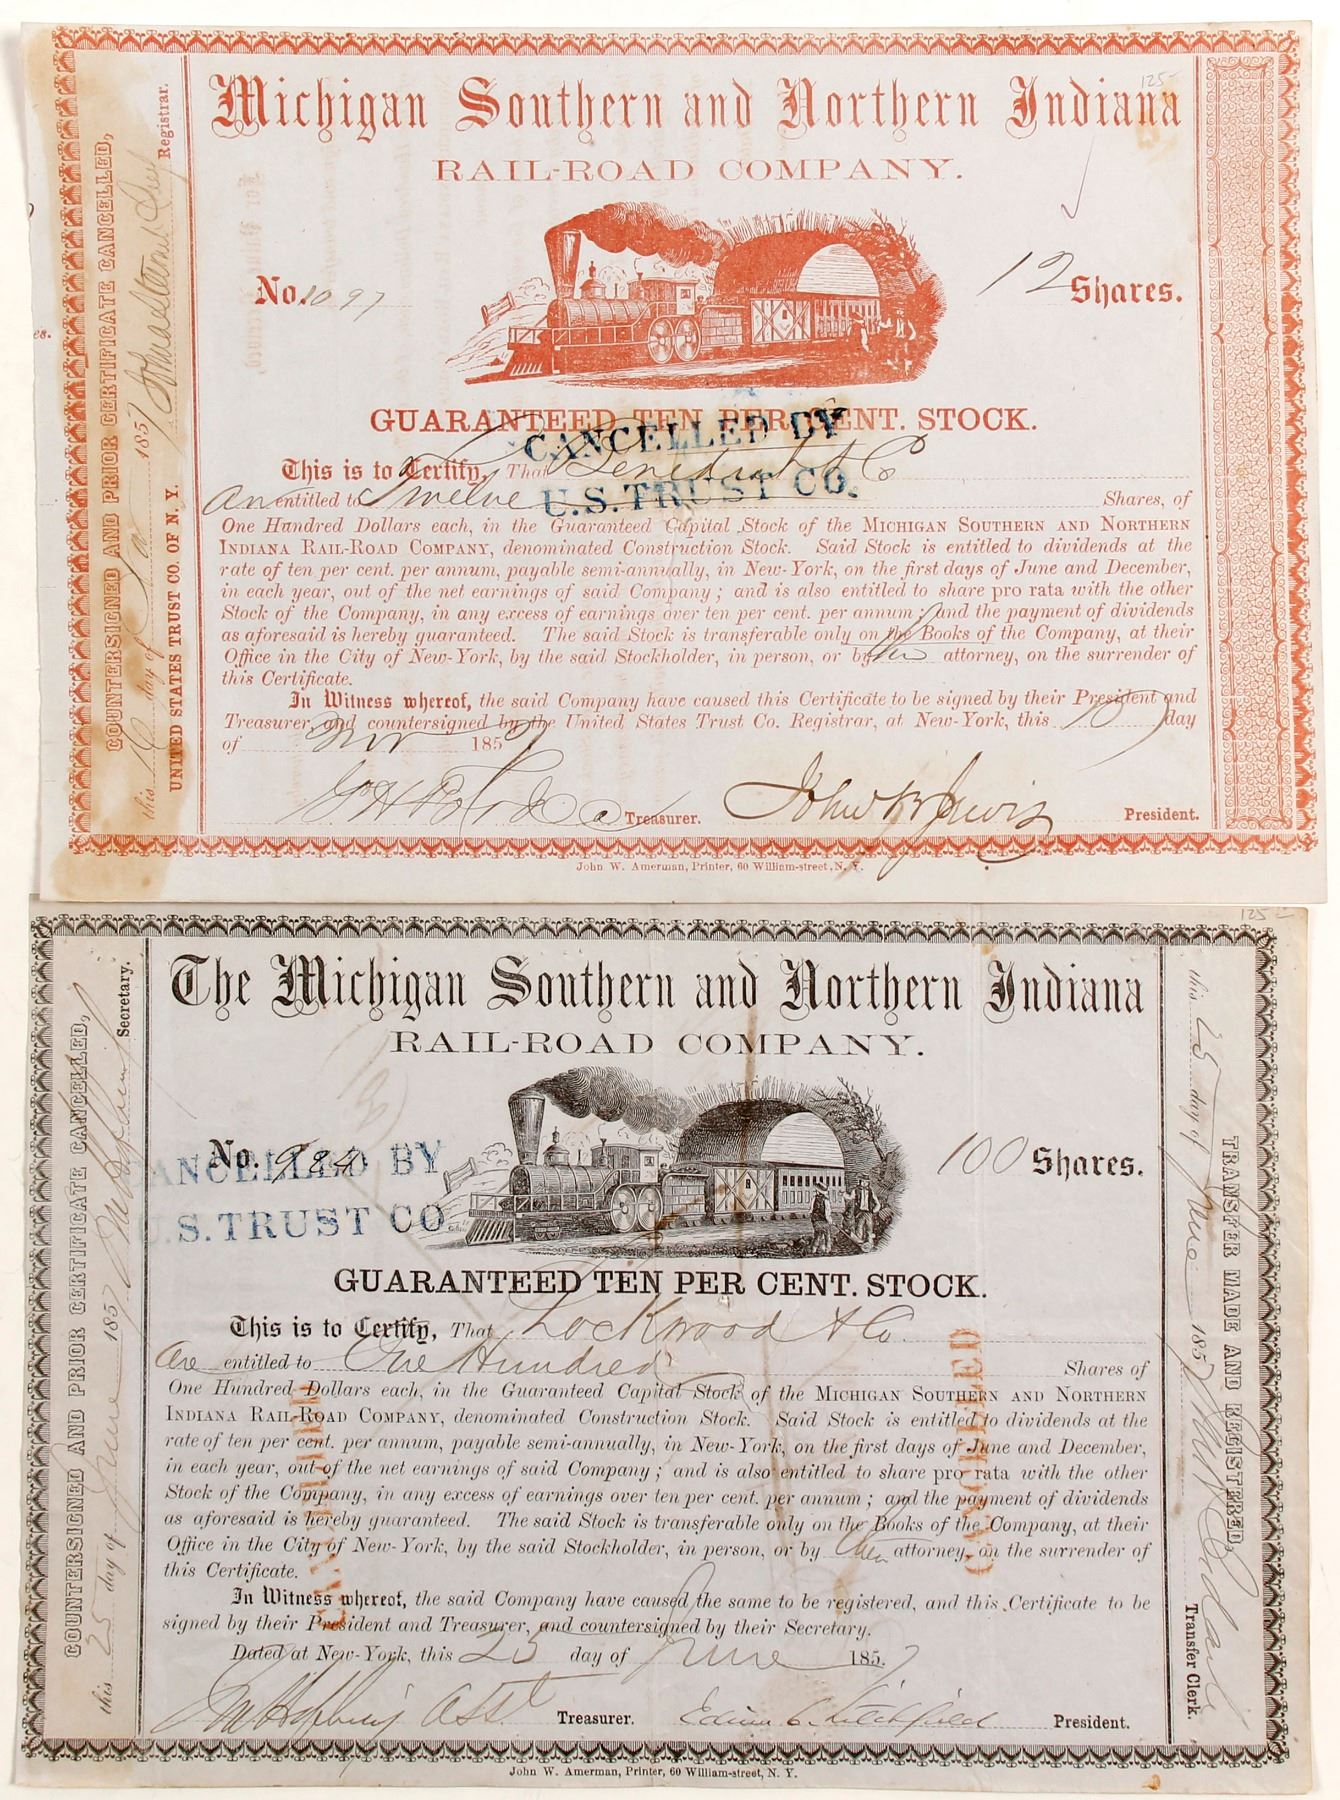 125-
Michigan Southern and Northern Indiana
RAIL-ROAD COMPANY.
No. 1097
12 Shares.
GUARANTEED TEN PER CENT. STOCK.
CANCELLED BY
U.S. TRUST CO.
This is to Certify, That Benedict & Co
are entitled to Twelve Shares, of
One Hundred Dollars each, in the Guaranteed Capital Stock of the MICHIGAN SOUTHERN AND NORTHERN
INDIANA RAIL-ROAD COMPANY, denominated Construction Stock. Said Stock is entitled to dividends at the
rate of ten per cent. per annum, payable semi-annually, in New-York, on the first days of June and December,
in each year, out of the net earnings of said Company; and is also entitled to share pro rata with the other
Stock of the Company, in any excess of earnings over ten per cent. per annum; and the payment of dividends
as aforesaid is hereby guaranteed. The said Stock is transferable only on the Books of the Company, at their
Office in the City of New-York, by the said Stockholder, in person, or by their attorney, on the surrender of
this Certificate.
In Witness whereof, the said Company have caused this Certificate to be signed by their President and
Treasurer, and countersigned by the United States Trust Co. Registrar, at New-York, this 10 day
of Nov 1857
Treasurer. John B Jervis President.
John W. Amerman, Printer, 60 William-street, N. Y.
COUNTERSIGNED AND PRIOR CERTIFICATE CANCELLED,
this 10 day of 1857 Registrar.
UNITED STATES TRUST CO. OF N. Y.
125-
The Michigan Southern and Northern Indiana
RAIL-ROAD COMPANY.
No. 984
100 Shares.
CANCELLED BY
U.S. TRUST CO
GUARANTEED TEN PER CENT. STOCK.
This is to Certify, That Lockwood & Co.
are entitled to One Hundred Shares of
One Hundred Dollars each, in the Guaranteed Capital Stock of the MICHIGAN SOUTHERN AND NORTHERN
INDIANA RAIL-ROAD COMPANY, denominated Construction Stock. Said Stock is entitled to dividends at the
rate of ten per cent. per annum, payable semi-annually, in New-York, on the first days of June and December,
in each year, out of the net earnings of said Company; and is also entitled to share pro rata with the other
Stock of the Company, in any excess of earnings over ten per cent. per annum; and the payment of dividends
as aforesaid is hereby guaranteed. The said Stock is transferable only on the Books of the Company, at their
Office in the City of New-York, by the said Stockholder, in person, or by their attorney, on the surrender of
this Certificate.
In Witness whereof, the said Company have caused the same to be registered, and this Certificate to be
signed by their President and Treasurer, and countersigned by their Secretary.
Dated at New-York, this 25 day of June 1857
Asst Treasurer. Edwin C. Litchfield President.
John W. Amerman, Printer, 60 William-street, N. Y.
COUNTERSIGNED AND PRIOR CERTIFICATE CANCELLED,
this 25 day of June 1857 Secretary.
TRANSFER MADE AND REGISTERED,
this 25 day of June 1857 Transfer Clerk.
CANCELLED
CANCELLED